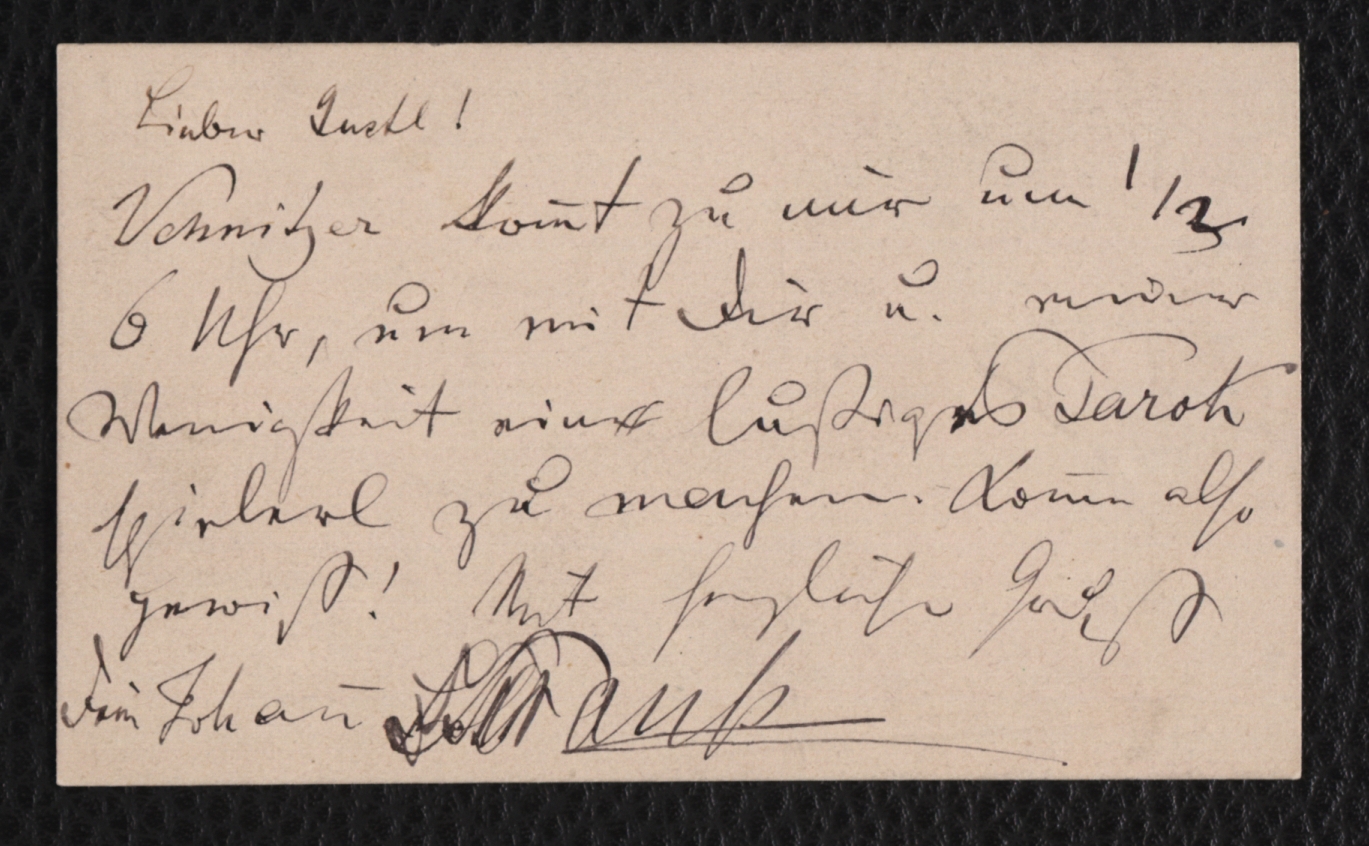 Lieber Gustl!
Schnitzer kom̄t zu mir um 1/2
6 Uhr, um mit Dir u. meiner
Wenigkeit ein lustiges Tarok
spielerl zu machen. Kom̄e also
gewiß! Mit herzliche Grüß
Dein Johan̄ Strauß